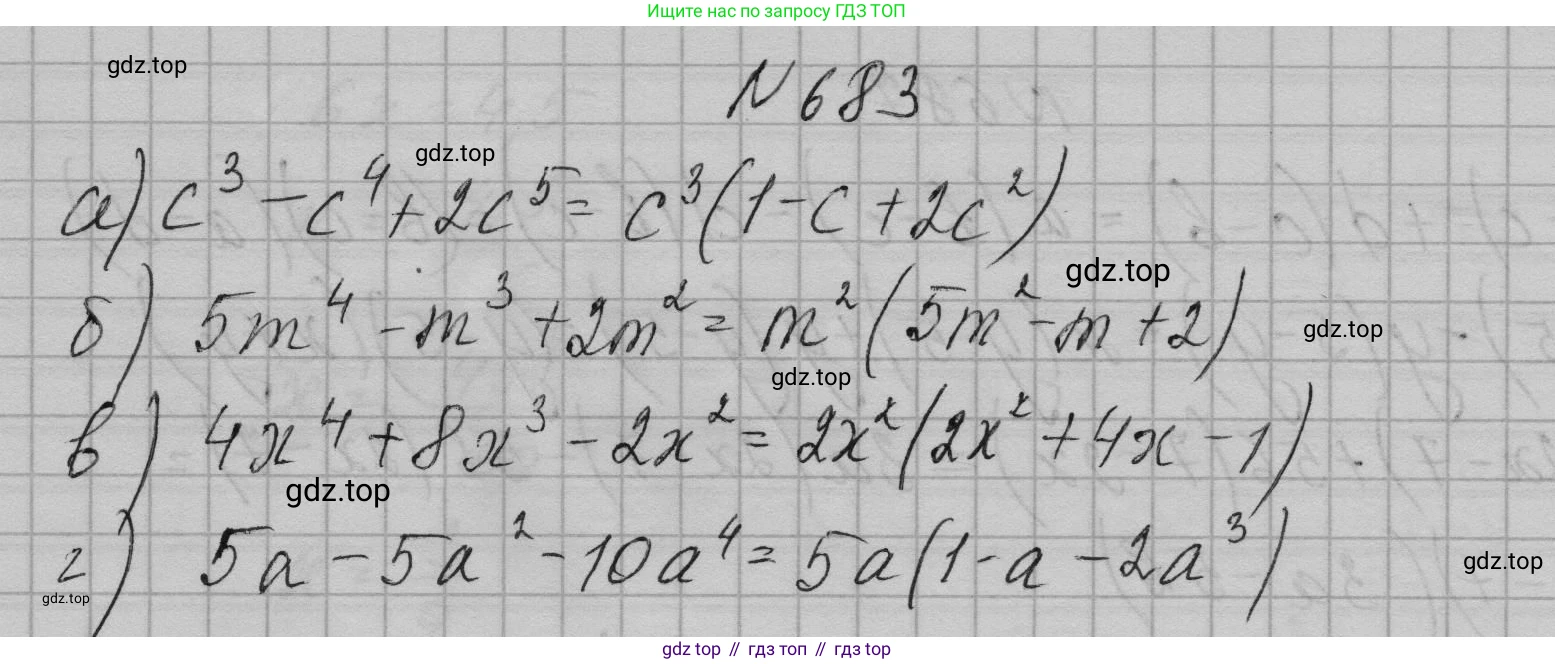 Ищите нас по запросу ГДЗ ТОП
gdz.top
N 683
gdz.top
а) c³ - c⁴ + 2c⁵ = c³(1 - c + 2c²)
gdz.top
б) 5m⁴ - m³ + 2m² = m²(5m² - m + 2)
gdz.top
gdz.top
в) 4x⁴ + 8x³ - 2x² = 2x²(2x² + 4x - 1)
gdz.top
г) 5a - 5a² - 10a⁴ = 5a(1 - a - 2a³)
gdz.top
gdz.top
gdz top // гдз топ // гдз top